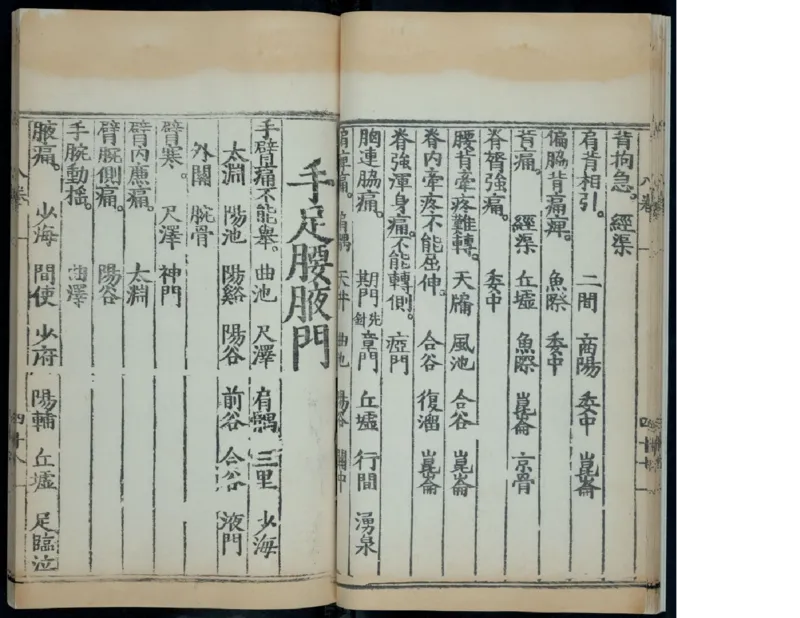 背拘急。 經渠
肩背相引。 二間 商陽 委中 崑崙
偏脇背痛痺。 魚際 委中
背痛。 經渠 丘墟 魚際 崑崙 京骨
脊膂強痛。 委中
腰背牽疼難轉。 天牖 風池 合谷 崑崙
脊內牽疼不能屈伸。 合谷 復溜 崑崙
脊強渾身痛。不能轉側。 瘂門
胸連脇痛。 期門 先針 章門 丘墟 行間 湧泉
肩痺痛。 肩髃 天井 曲池 陽谷 關冲
手足腰腋門
手臂痛不能舉。 曲池 尺澤 肩髃 三里 少海
太淵 陽池 陽谿 陽谷 前谷 合谷 液門
外關 腕骨
臂寒。 尺澤 神門
臂內廉痛。 太淵
臂腕側痛。 陽谷
手腕動搖。 曲澤
腋痛。 少海 間使 少府 陽輔 丘墟 足臨泣
八卷
四十八